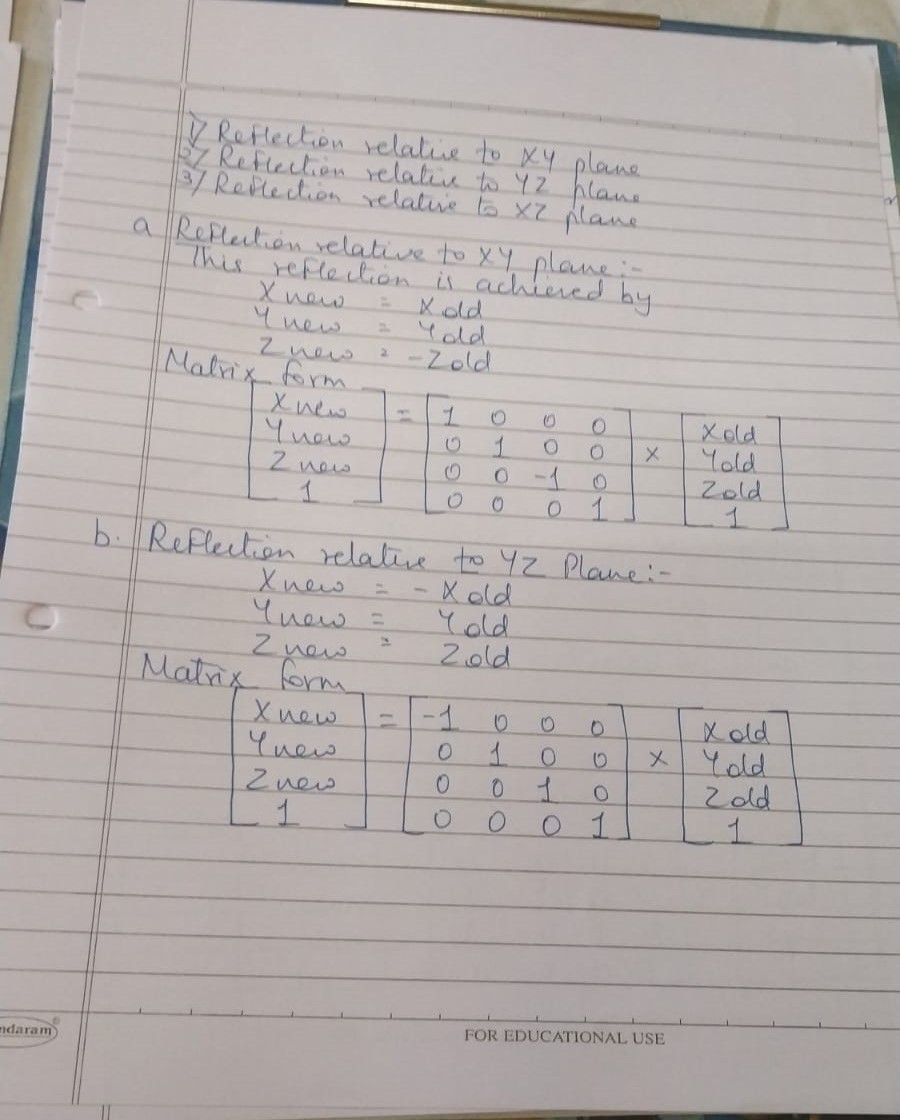 1) Reflection relative to XY plane
2) Reflection relative to YZ plane
3) Reflection relative to XZ plane
a Reflection relative to XY plane:-
This reflection is achieved by
Xnew = Xold
Ynew = Yold
Znew = -Zold
Matrix form
Xnew = 1 0 0 0 Xold
Ynew 0 1 0 0 × Yold
Znew 0 0 -1 0 Zold
1 0 0 0 1 1
b. Reflection relative to YZ Plane:-
Xnew = - Xold
Ynew = Yold
Znew = Zold
Matrix form
Xnew = -1 0 0 0 Xold
Ynew 0 1 0 0 × Yold
Znew 0 0 1 0 Zold
1 0 0 0 1 1
ndaram
FOR EDUCATIONAL USE